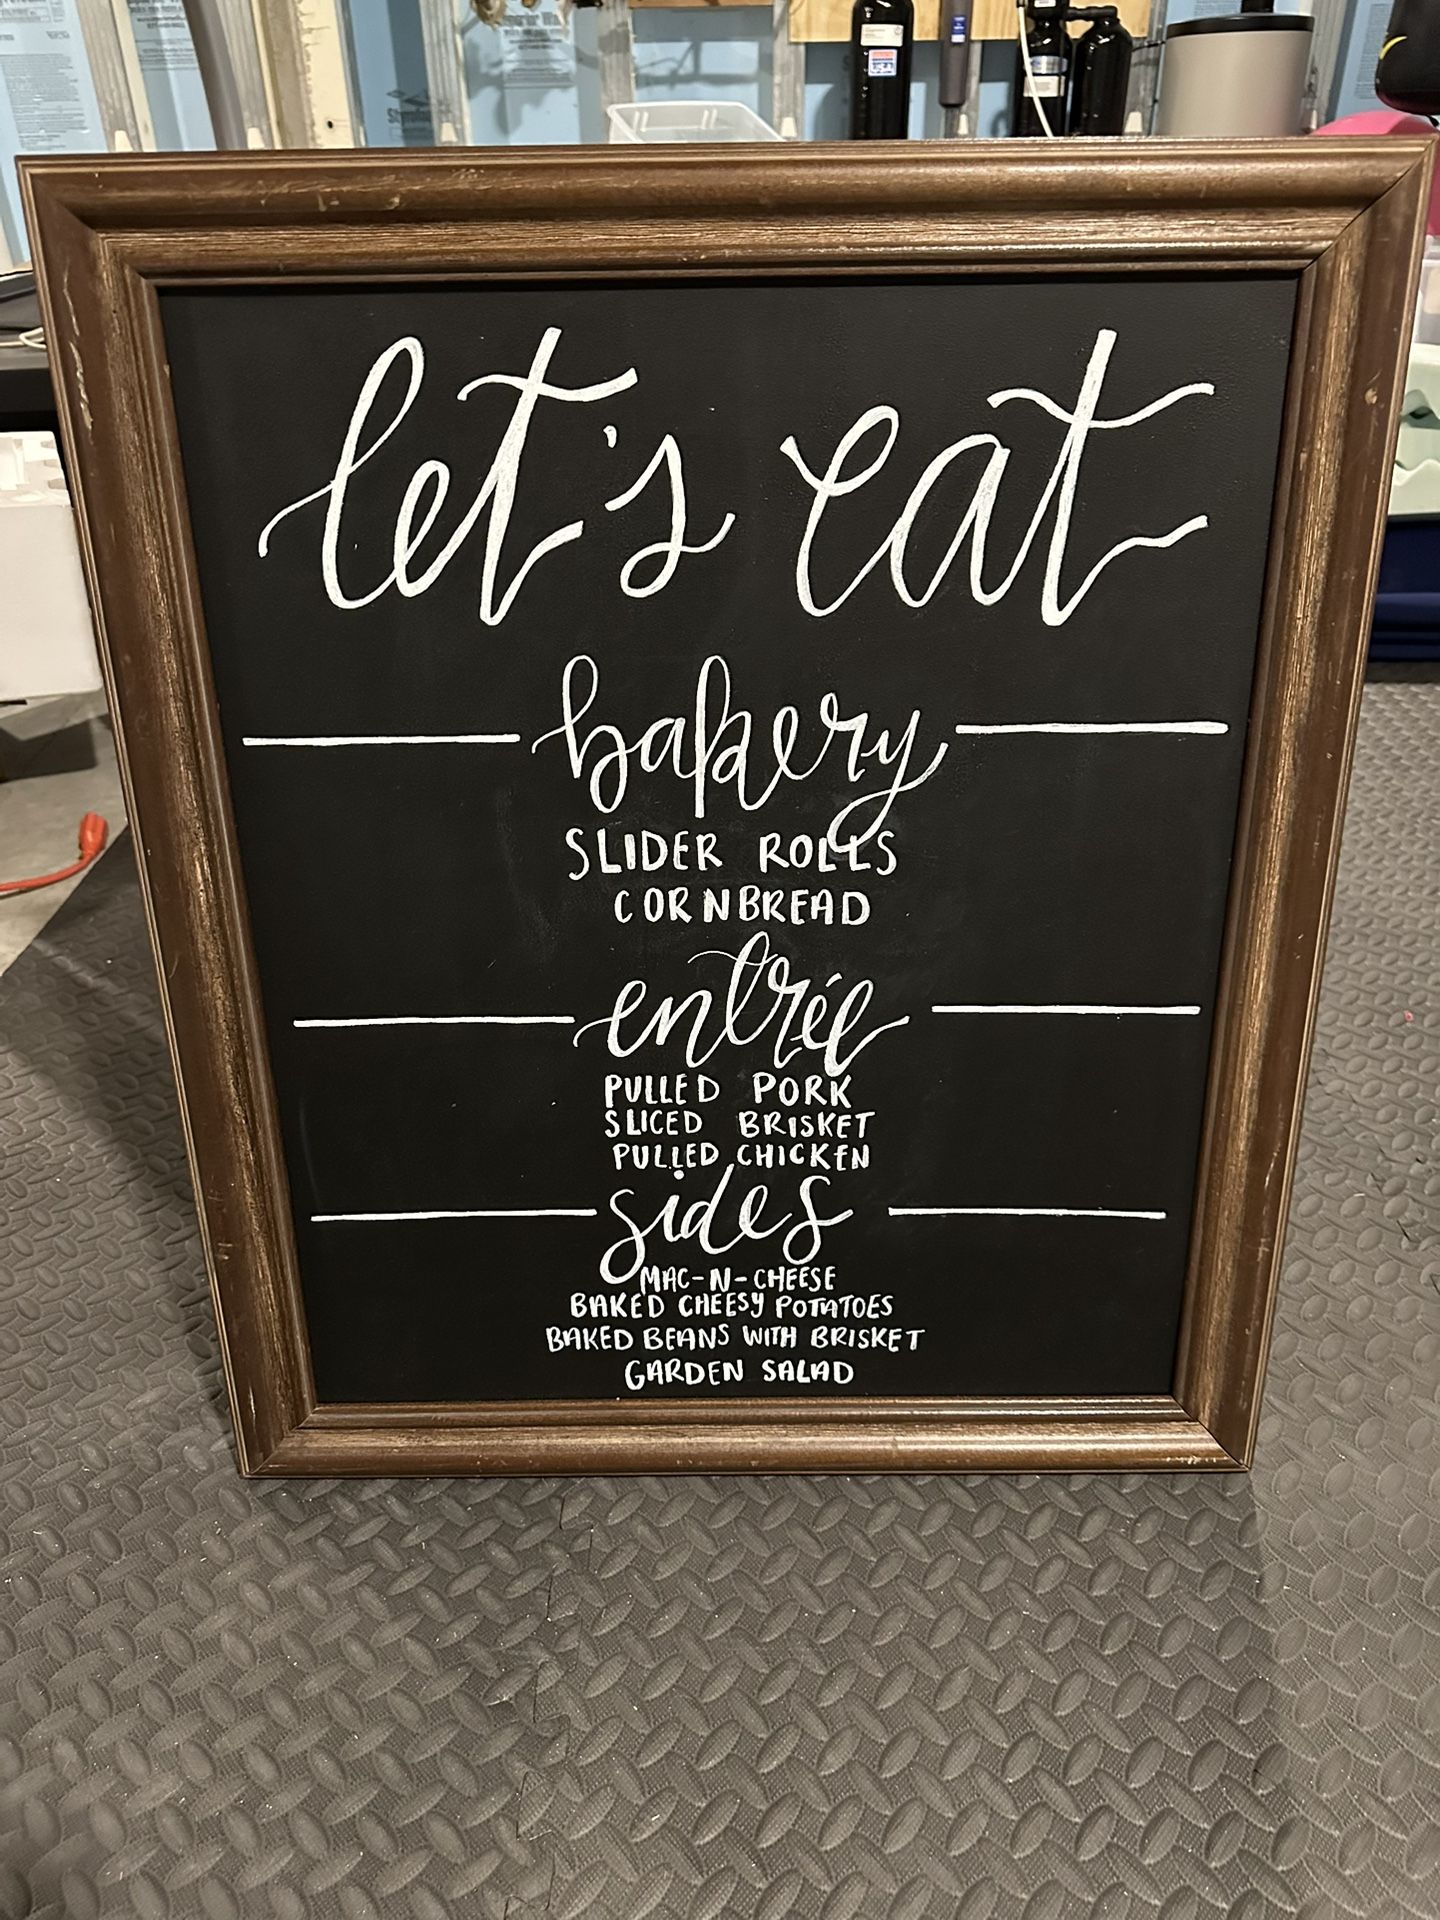 let's eat
bakery
SLIDER ROLLS
CORNBREAD
entrée
PULLED PORK
SLICED BRISKET
PULLED CHICKEN
sides
MAC-N-CHEESE
BAKED CHEESY POTATOES
BAKED BEANS WITH BRISKET
GARDEN SALAD